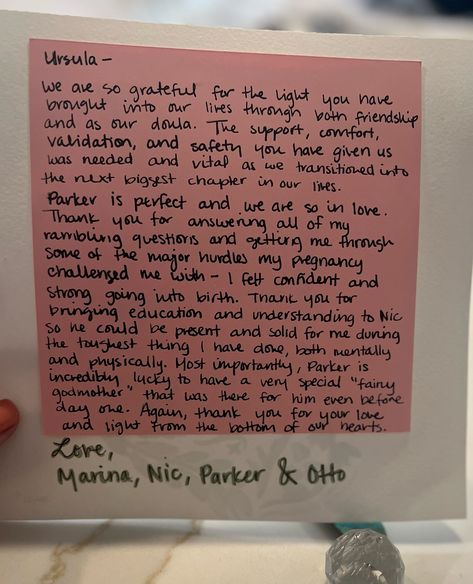 Ursula -
We are so grateful for the light you have
brought into our lives through both friendship
and as our doula. The support, comfort,
validation, and safety you have given us
was needed and vital as we transitioned into
the next biggest chapter in our lives.
Parker is perfect and we are so in love.
Thank you for answering all of my
rambling questions and getting me through
some of the major hurdles my pregnancy
challenged me with - I felt confident and
strong going into birth. Thank you for
bringing education and understanding to Nic
so he could be present and solid for me during
the toughest thing I have done, both mentally
and physically. Most importantly, Parker is
incredibly lucky to have a very special "fairy
godmother" that was there for him even before
day one. Again, thank you for your love
and light from the bottom of our hearts.
Love,
Marina, Nic, Parker & Otto